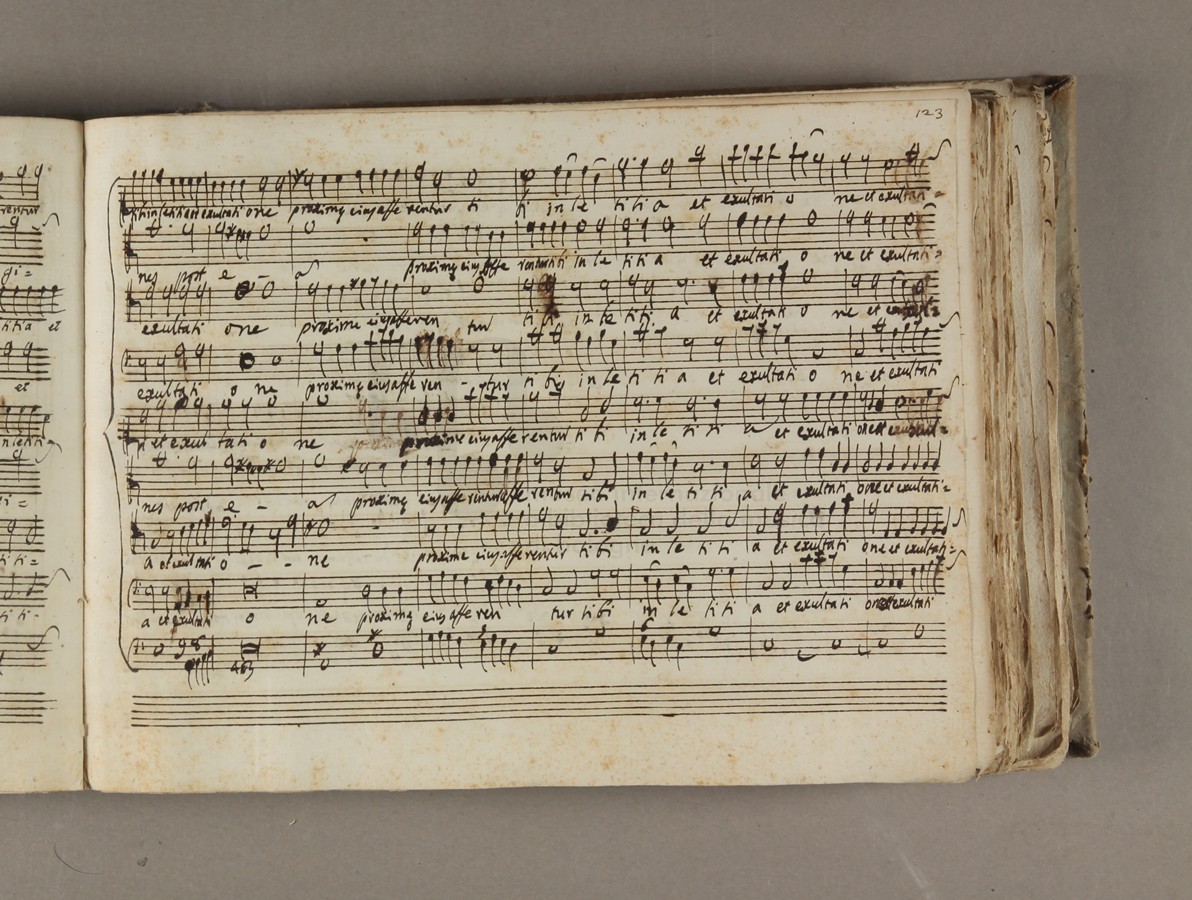 123
et exultati one proximę eius afferentur ti bi in le ti ti a et exultati o ne et exultati=
nes post e - a proximę eius afferentur tibi in le ti ti a et exultati o ne et exultati=
exultati o ne proxime eius afferen tur ti bi in le ti ti a et exultati o ne et
exultati o ne proximę eius afferen - tur ti bi in le ti ti a et exultati o ne et exultati
et exul tati o ne proxime eius afferentur ti bi in le ti ti a et exultati one et
nes post e - a proximę eius afferentur afferentur tibi in le ti ti a et exultati one et exultati=
a et exultati o - - ne proxime eius afferentur ti bi in le ti ti a et exultati one et exultati=
a et exultati o ne proximę eius afferen tur ti bi in le ti ti a et exultati one et exultati
rentur
gi=
titia et
et
ti=
ti ti=
ti ti-